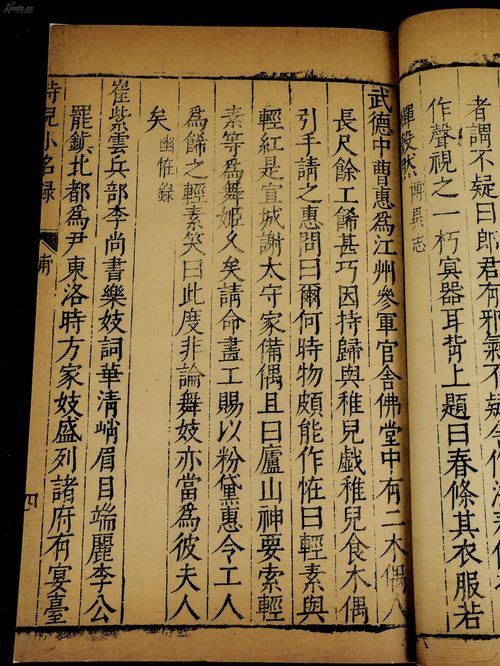 者謂不疑曰郎君有邪氣不疑
作聲視之一朽寘器耳背上題曰春條其衣服若
殺然 博異志
武德中曹惠爲江州參軍官舍佛堂中有二木偶人
長尺餘工餙甚巧因持歸與稚兒戲稚兒食木偶
引手請之惠問曰爾何時物頗能作恠曰輕素與
輕紅是宣城謝太守家俻偶且曰廬山神要索輕
素等爲舞姬久矣請命畫工賜以粉黛惠令工人
爲餙之輕素笑曰此度非論舞妓亦當爲彼夫人
矣 幽恠録
崔紫雲兵部李尚書樂妓詞華清峭眉目端麗李公
罷鎮北都爲尹東洛時方家妓盛列諸府有宴臺
侍兒小名録
四